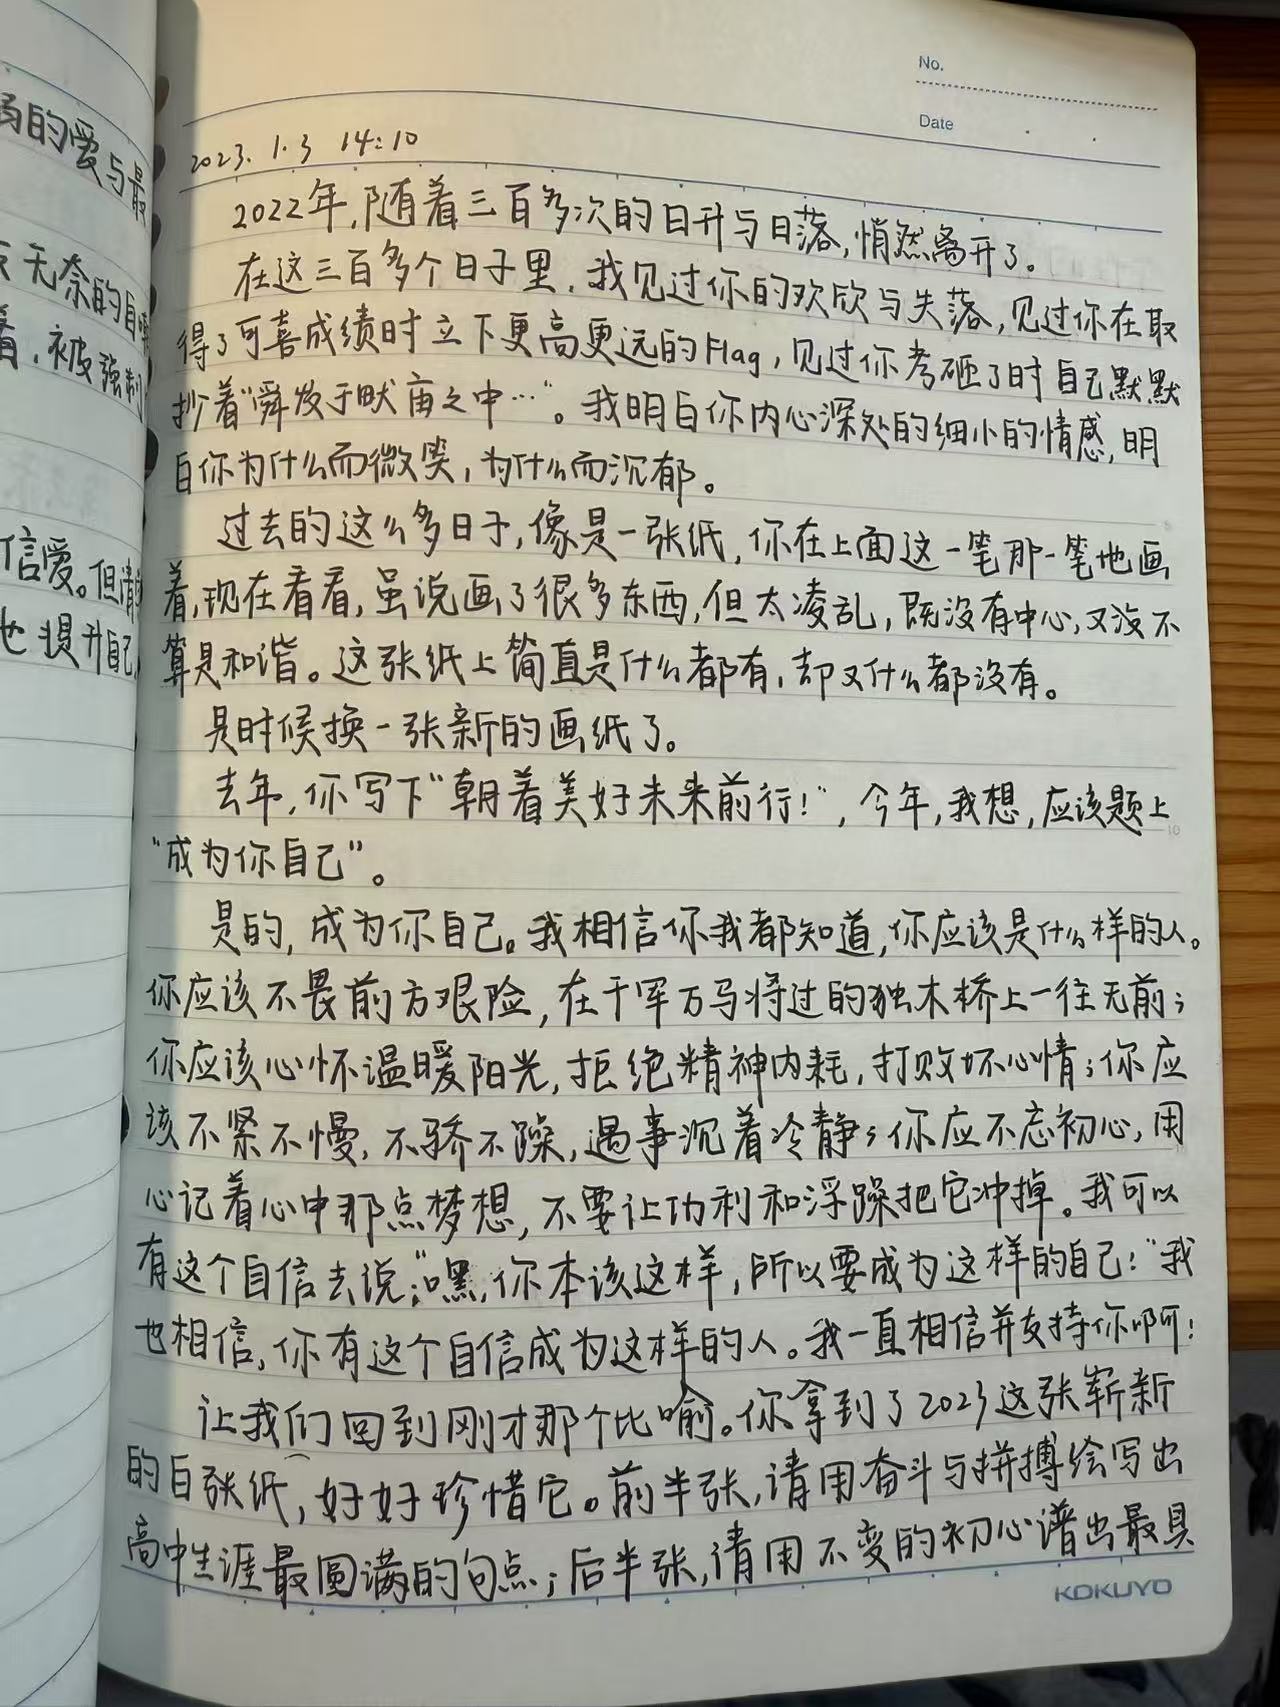 No.
Date
2023.1.3 14:10
2022年,随着三百多次的日升与日落,悄然离开了。
在这三百多个日子里,我见过你的欢欣与失落,见过你在取
得了可喜成绩时立下更高更远的Flag,见过你考砸了时自己默默
抄着“舜发于畎亩之中…”。我明白你内心深处的细小的情感,明
白你为什么而微笑,为什么而沉郁。
过去的这么多日子,像是一张纸,你在上面这一笔那一笔地画
着,现在看看,虽说画了很多东西,但太凌乱,既没有中心,又没不
算是和谐。这张纸上简直是什么都有,却又什么都没有。
是时候换一张新的画纸了。
去年,你写下“朝着美好未来前行!”,今年,我想,应该题上
“成为你自己”。
是的,成为你自己。我相信你我都知道,你应该是什么样的人。
你应该不畏前方艰险,在千军万马将过的独木桥上一往无前;
你应该心怀温暖阳光,拒绝精神内耗,打败坏心情;你应
该不紧不慢,不骄不躁,遇事沉着冷静;你应不忘初心,用
心记着心中那点梦想,不要让功利和浮躁把它冲掉。我可以
有这个自信去说:“嘿,你本该这样,所以要成为这样的自己!”我
也相信,你有这个自信成为这样的人。我一直相信并支持你啊!
让我们回到刚才那个比喻。你拿到了2023这张崭新
的白张纸,好好珍惜它。前半张,请用奋斗与拼搏绘写出
高中生涯最圆满的句点;后半张,请用不变的初心谱出最具
KOKUYO
的爱与最
无奈的自嘲
着,被强制
信爱。但请
也提升自己